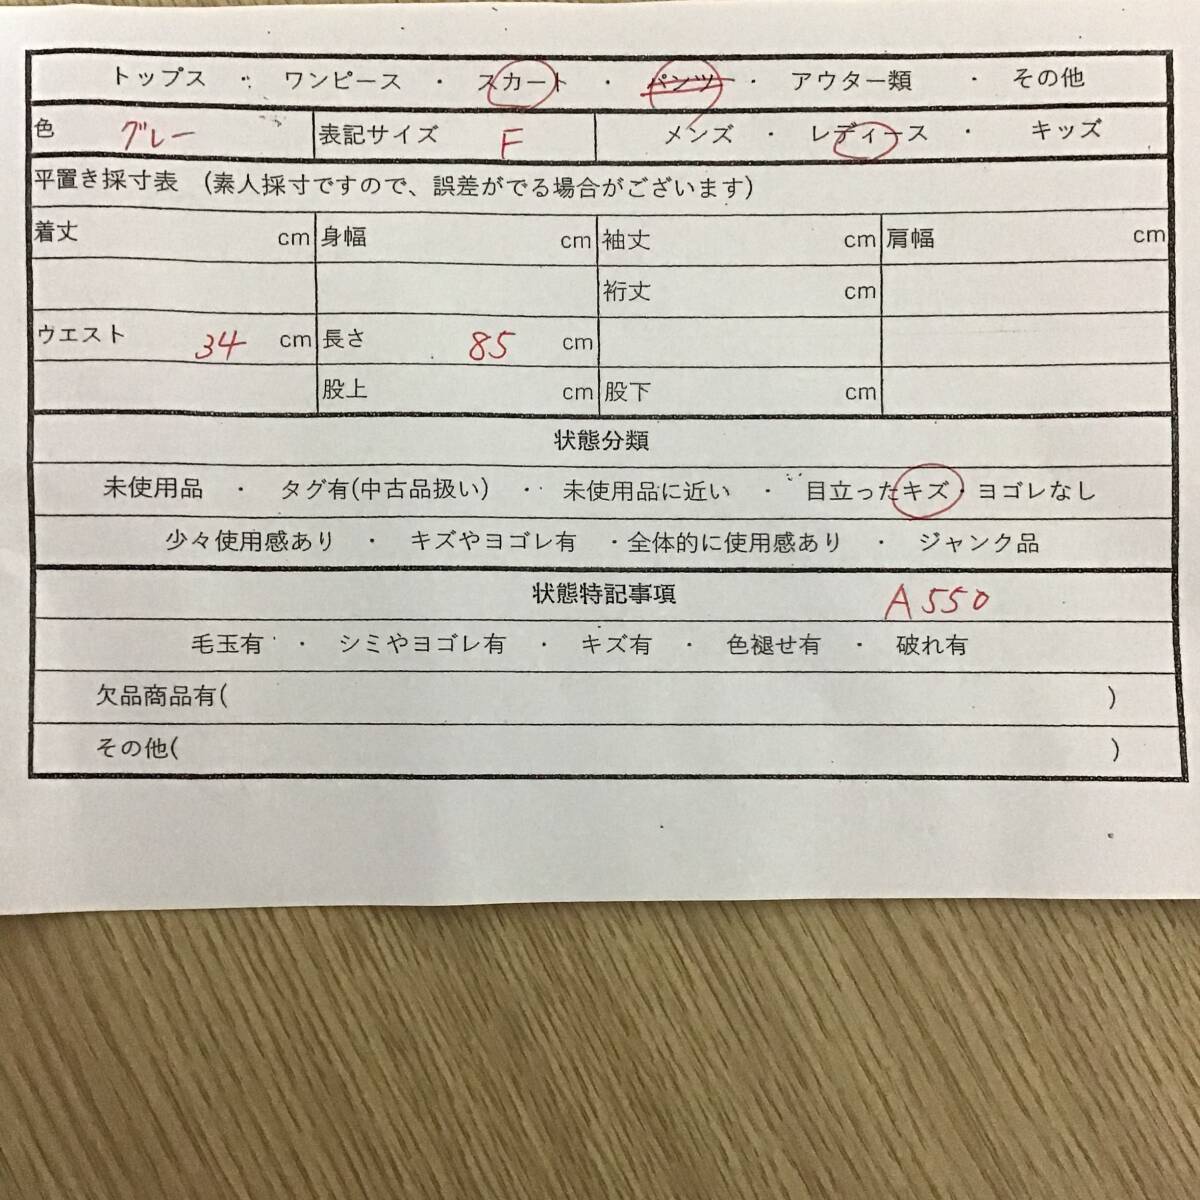 トップス ・ ワンピース ・ スカート ・ パンツ ・ アウター類 ・ その他
色 グレー 表記サイズ F メンズ ・ レディース ・ キッズ
平置き採寸表 (素人採寸ですので、誤差がでる場合がございます)
着丈 cm 身幅 cm 袖丈 cm 肩幅 cm
裄丈 cm
ウエスト 34 cm 長さ 85 cm
股上 cm 股下 cm
状態分類
未使用品 ・ タグ有(中古品扱い) ・ 未使用品に近い ・ 目立ったキズ・ヨゴレなし
少々使用感あり ・ キズやヨゴレ有 ・全体的に使用感あり ・ ジャンク品
状態特記事項 A550
毛玉有 ・ シミやヨゴレ有 ・ キズ有 ・ 色褪せ有 ・ 破れ有
欠品商品有( )
その他( )